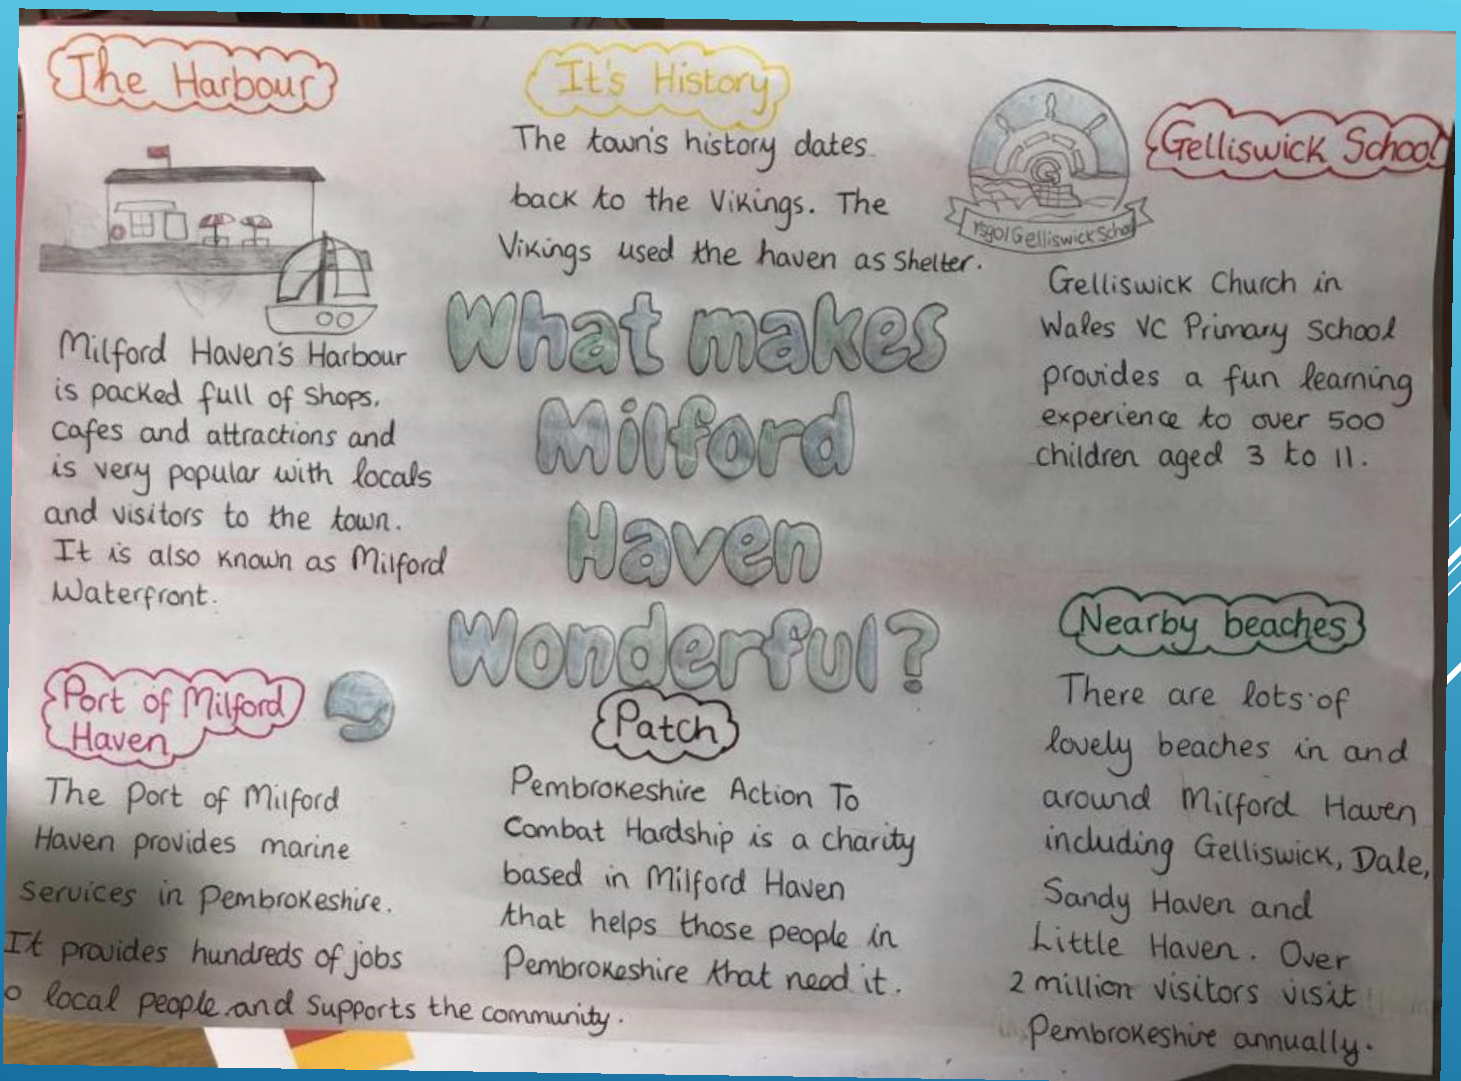 The Harbour
Milford Haven's Harbour
is packed full of shops,
cafes and attractions and
is very popular with locals
and visitors to the town.
It is also known as Milford
Waterfront.
It's History
The town's history dates
back to the Vikings. The
Vikings used the haven as shelter.
Ysgol Gelliswick School
Gelliswick School
Gelliswick Church in
Wales VC Primary School
provides a fun learning
experience to over 500
children aged 3 to 11.
What makes
Milford
Haven
Wonderful?
Port of Milford
Haven
The Port of Milford
Haven provides marine
services in Pembrokeshire.
It provides hundreds of jobs
o local people and supports the community.
Patch
Pembrokeshire Action To
Combat Hardship is a charity
based in Milford Haven
that helps those people in
Pembrokeshire that need it.
Nearby beaches
There are lots of
lovely beaches in and
around Milford Haven
including Gelliswick, Dale,
Sandy Haven and
Little Haven. Over
2 million visitors visit
Pembrokeshire annually.